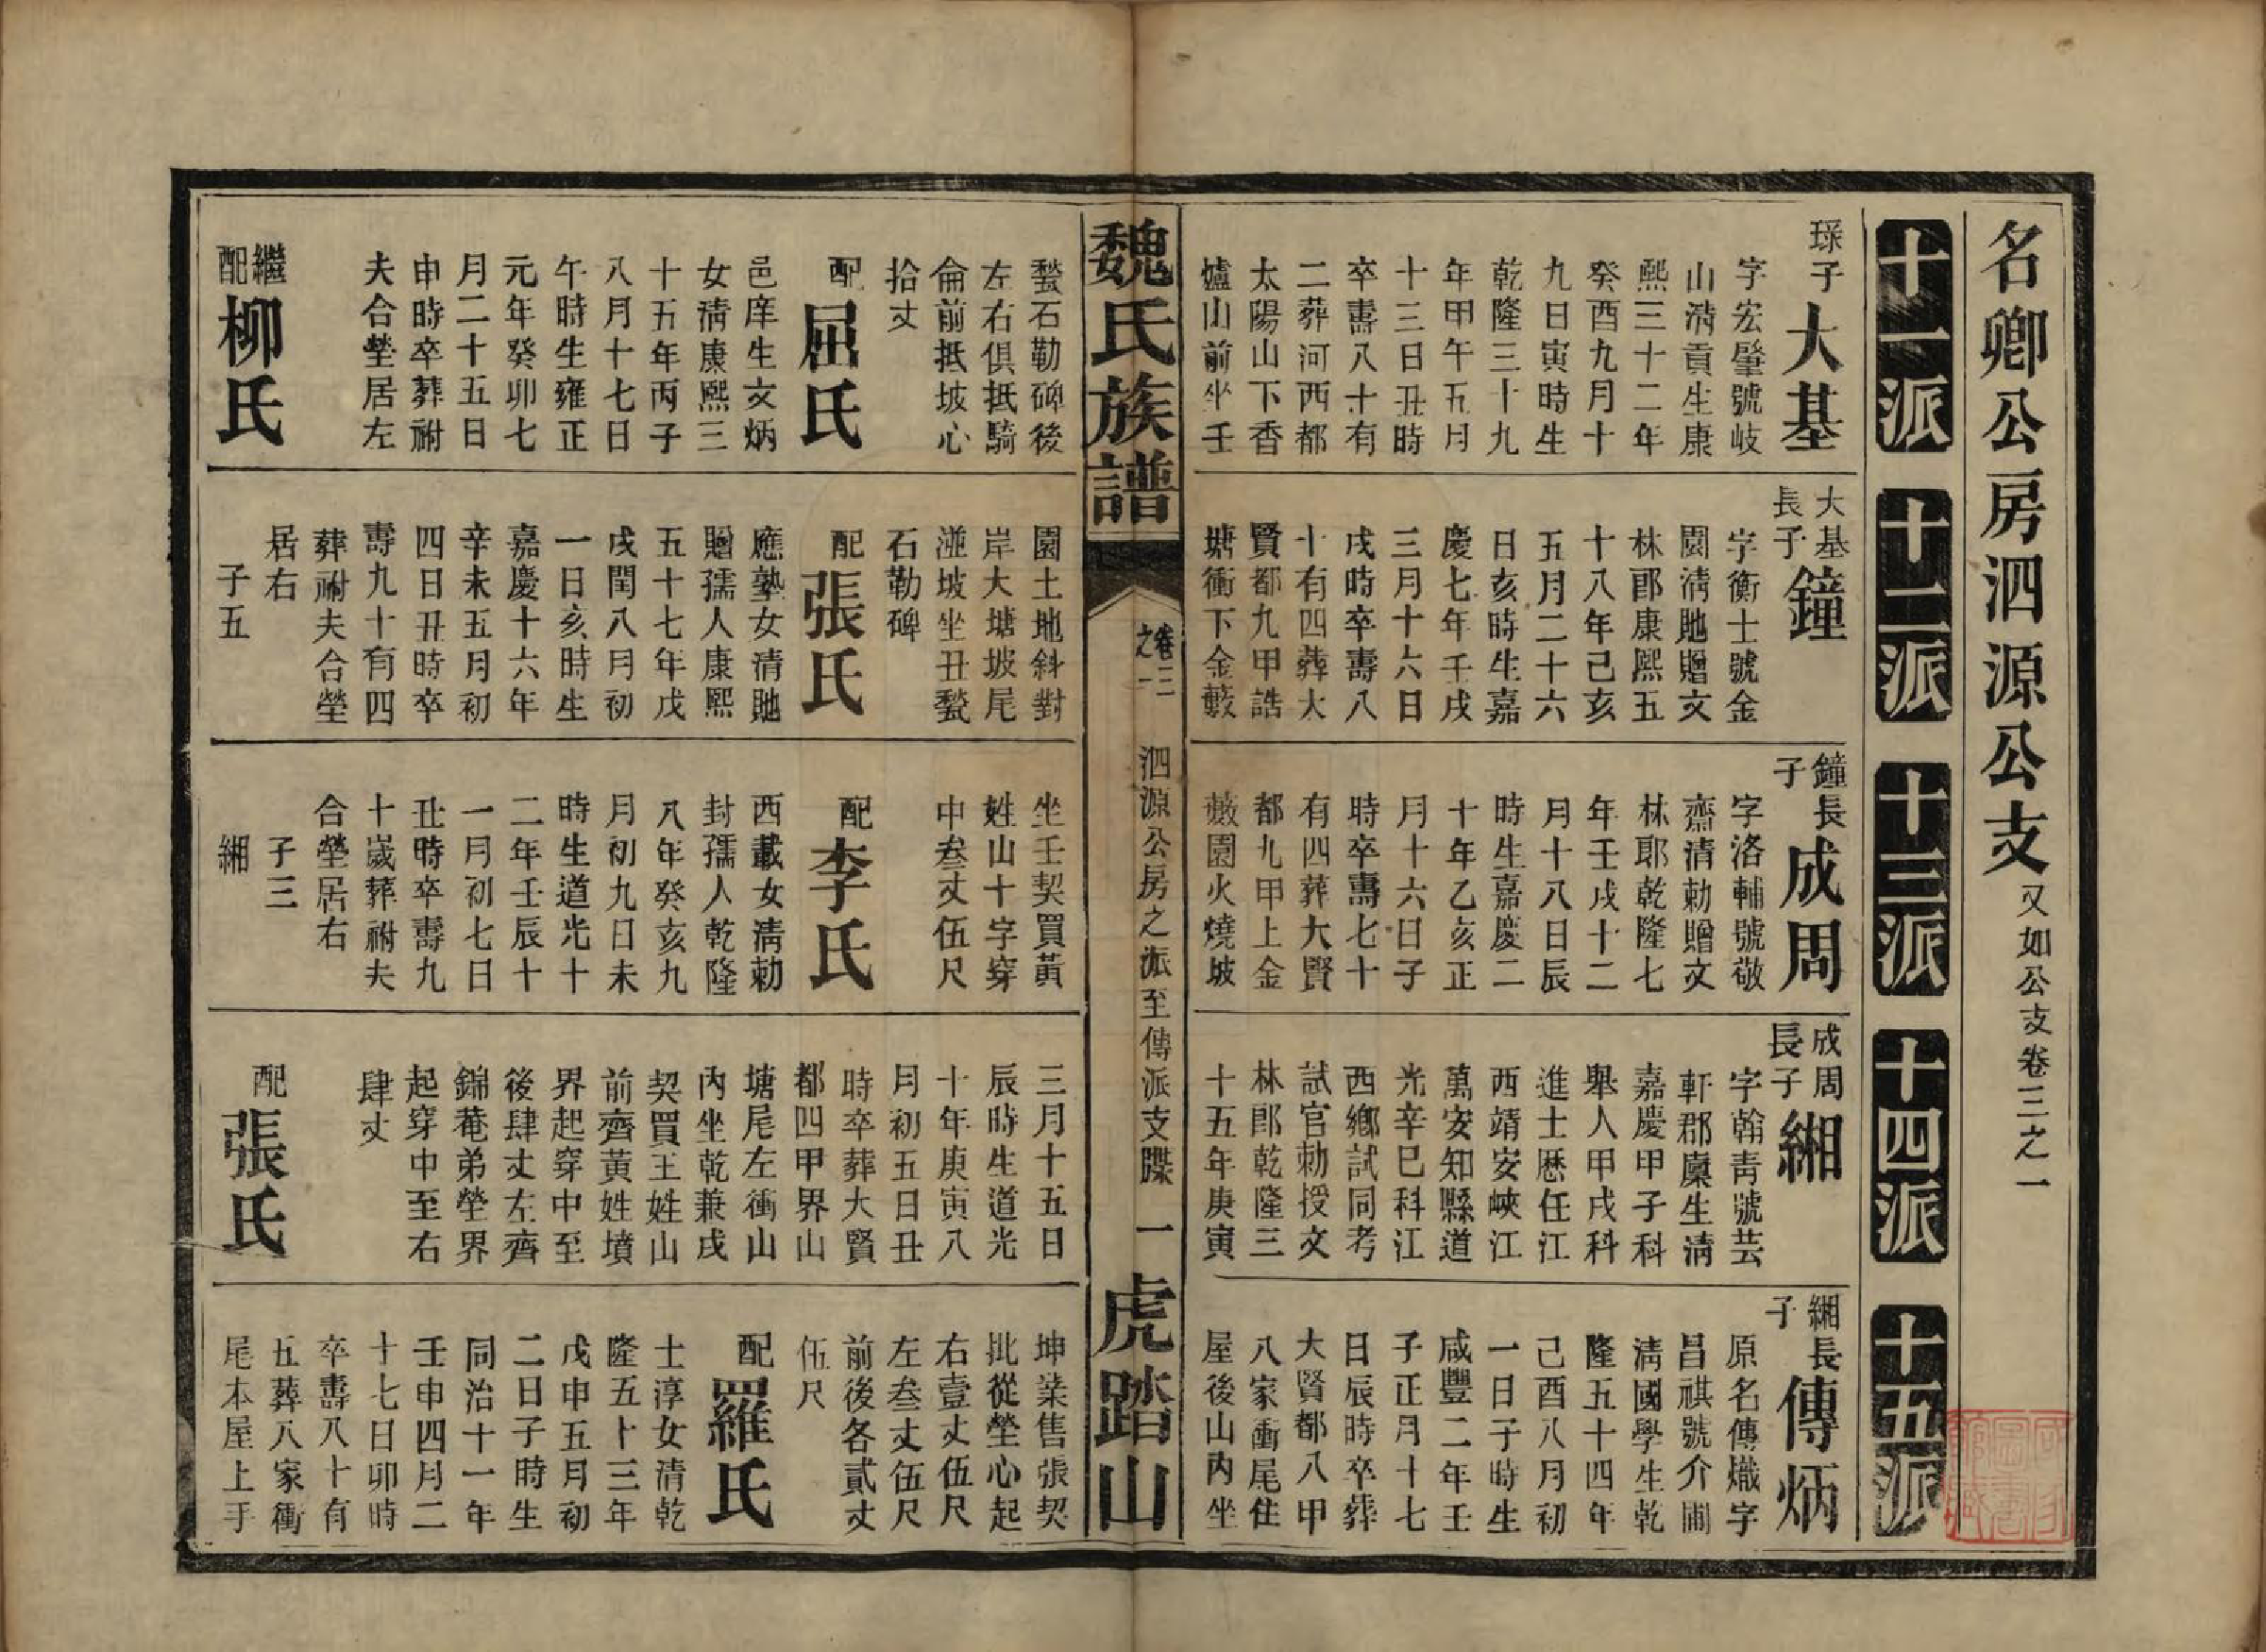 名卿公房泗源公支又如公支卷三之一
十一派
十二派
十三派
十四派
十五派
琛子大基
字宏肇號岐
山清貢生康
熙三十二年
癸酉九月十
九日寅時生
乾隆三十九
年甲午五月
十三日丑時
卒壽八十有
二葬河西都
太陽山下香
爐山前坐壬
大基
長子鐘
字衡士號金
園清貤贈文
林郎康熙五
十八年己亥
五月二十六
日亥時生嘉
慶七年壬戌
三月十六日
戌時卒壽八
十有四葬大
賢都九甲誥
塘衝下金藪
鐘長
子成周
字洛輔號敬
齋清勅贈文
林郎乾隆七
年壬戌十二
月十八日辰
時生嘉慶二
十年乙亥正
月十六日子
時卒壽七十
有四葬大賢
都九甲上金
藪園火燒坡
成周
長子緗
字翰青號芸
軒郡廩生清
嘉慶甲子科
舉人甲戌科
進士歷任江
西靖安峽江
萬安知縣道
光辛巳科江
西鄉試同考
試官勅授文
林郎乾隆三
十五年庚寅
緗長
子傳炳
原名傳熾字
昌祺號介圃
清國學生乾
隆五十四年
己酉八月初
一日子時生
咸豐二年壬
子正月十七
日辰時卒葬
大賢都八甲
八家衝尾住
屋後山內坐
魏氏族譜
卷三
之一
泗源公房之派至傳派支牒
一
虎踏山
甃石勒碑後
左右俱抵騎
侖前抵坡心
拾丈
配屈氏
邑庠生文炳
女清康熙三
十五年丙子
八月十七日
午時生雍正
元年癸卯七
月二十五日
申時卒葬祔
夫合塋居左
繼
配柳氏
園土地斜對
岸大塘坡尾
湴坡坐丑甃
石勒碑
配張氏
應塾女清貤
贈孺人康熙
五十七年戊
戌閏八月初
一日亥時生
嘉慶十六年
辛未五月初
四日丑時卒
壽九十有四
葬祔夫合塋
居右
子五
坐壬契買黃
姓山十字穿
中叁丈伍尺
配李氏
西載女清勅
封孺人乾隆
八年癸亥九
月初九日未
時生道光十
二年壬辰十
一月初七日
丑時卒壽九
十歲葬祔夫
合塋居右
子三
緗
三月十五日
辰時生道光
十年庚寅八
月初五日丑
時卒葬大賢
都四甲界山
塘尾左衝山
內坐乾兼戌
契買王姓山
前齊黃姓墳
界起穿中至
後肆丈左齊
錦菴弟塋界
起穿中至右
肆丈
配張氏
坤業售張契
批從塋心起
右壹丈伍尺
左叁丈伍尺
前後各貳丈
伍尺
配羅氏
士淳女清乾
隆五十三年
戊申五月初
二日子時生
同治十一年
壬申四月二
十七日卯時
卒壽八十有
五葬八家衝
尾本屋上手